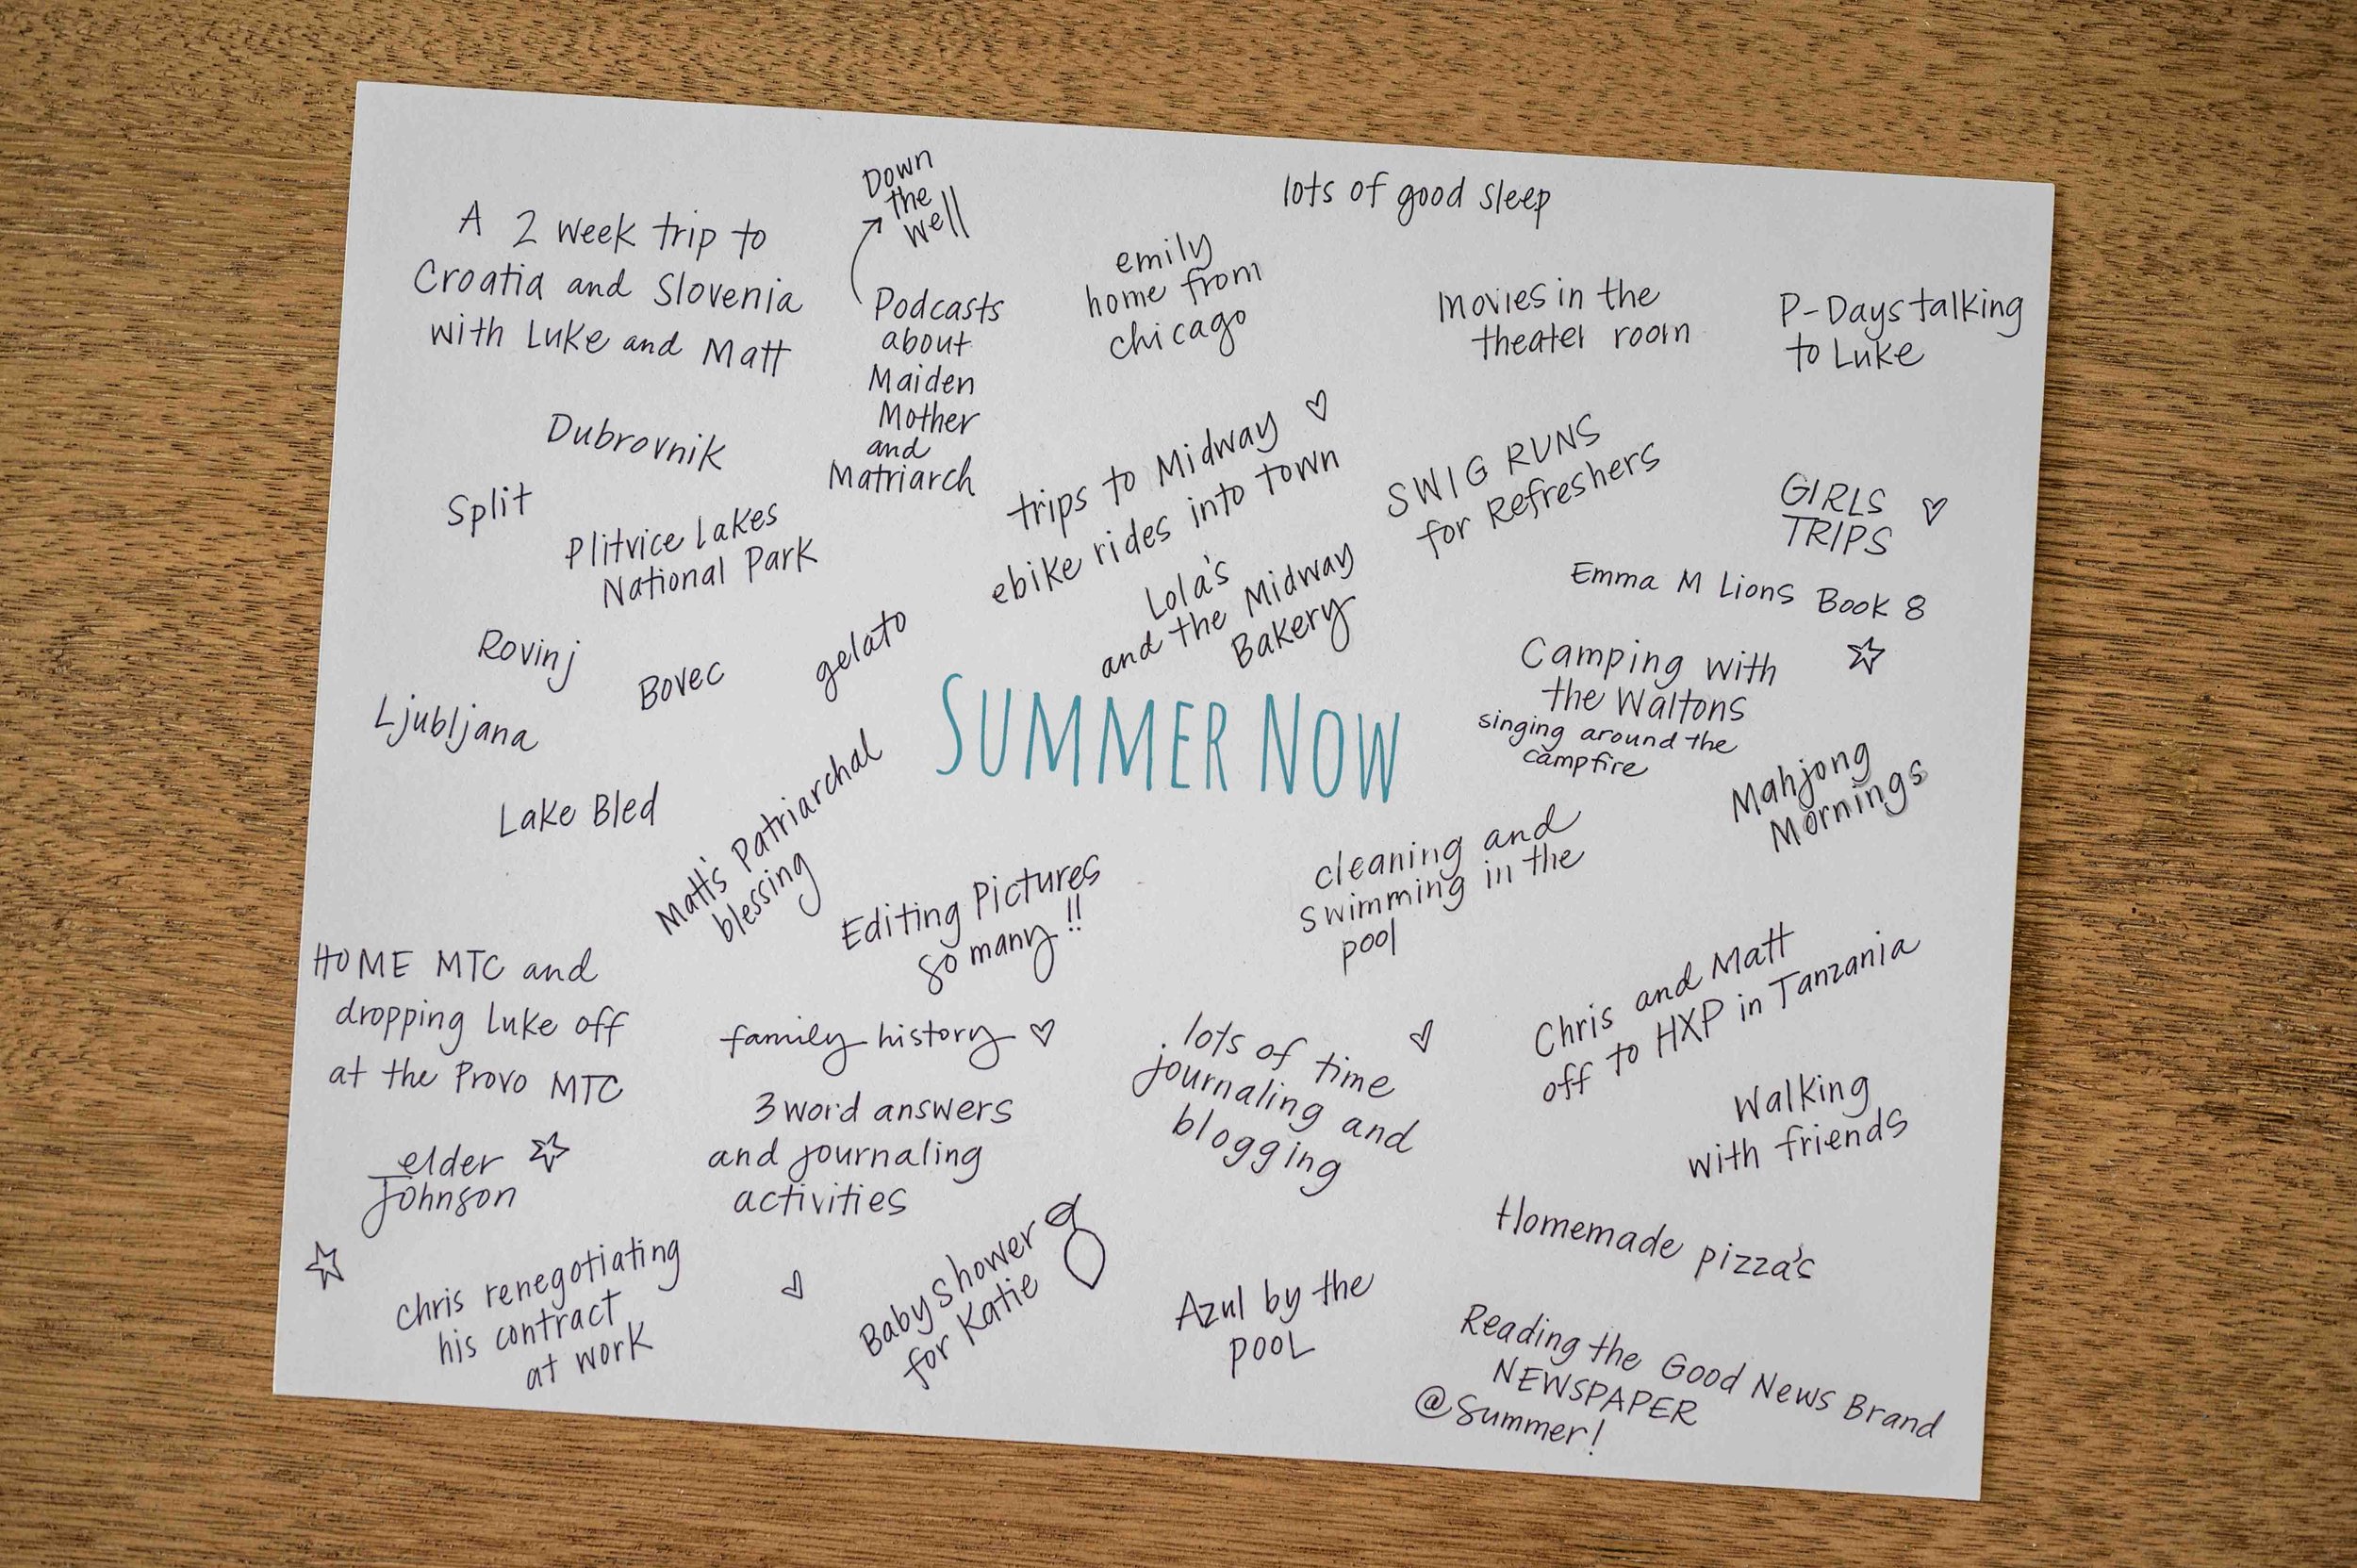 Down
the
well
A 2 week trip to
Croatia and Slovenia
with Luke and Matt
Podcasts
about
Maiden
Mother
and
Matriarch
emily
home from
chicago
lots of good sleep
movies in the
theater room
P-Days talking
to Luke
Dubrovnik
Split
Plitvice Lakes
National Park
trips to Midway
ebike rides into town
Lola's
and the Midway
Bakery
SWIG RUNS
for Refreshers
GIRLS
TRIPS
Emma M Lions Book 8
Rovinj
Bovec
gelato
Ljubljana
Lake Bled
SUMMER NOW
Camping with
the Waltons
singing around the
campfire
Mahjong
Mornings
Matt's Patriarchal
blessing
Editing Pictures
so many!!
cleaning and
swimming in the
pool
HOME MTC and
dropping Luke off
at the Provo MTC
family history
lots of time
journaling and
blogging
Chris and Matt
off to HXP in Tanzania
3 word answers
and journaling
activities
Walking
with friends
elder
Johnson
Chris renegotiating
his contract
at work
Baby shower
for Katie
Azul by the
POOL
Homemade pizza's
Reading the Good News Brand
NEWSPAPER
@Summer!